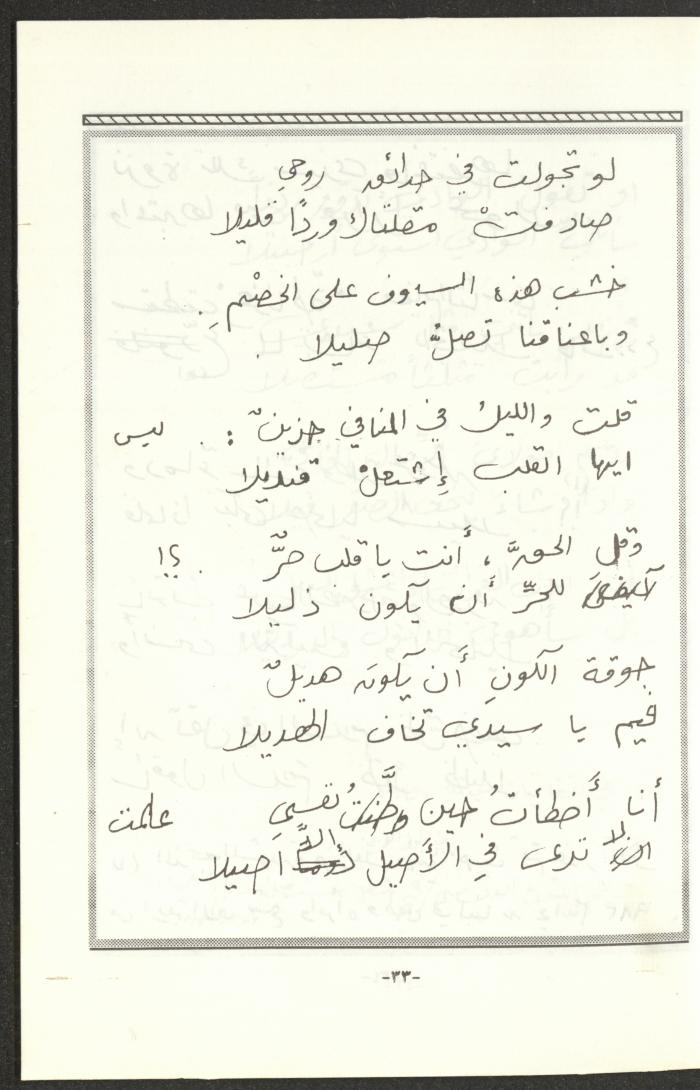 لو تجولت في حدائق روحي
صادفتْ مقلتاك وردًا قليلا
خشب هذه السيوف على الخصْمِ
وبأعناقنا تصلُّ صليلا
قلت والليل في المنافي حزينٌ : ليس
ايها القلب إِشتعلْ قنديلا
وقلِ الحقَّ ، أنت يا قلب حرٌّ . ؟!
للحرِّ أن يكون ذليلا
جوقة الكونِ أَن يكونَ هديلٌ
فيم يا سيدي تخاف الهديلا
أنا أَخطأتُ حين وطَّنتُ نفسي علمت
لا ترى في الأَصيل إلاَّ اصيلا
-٣٣-